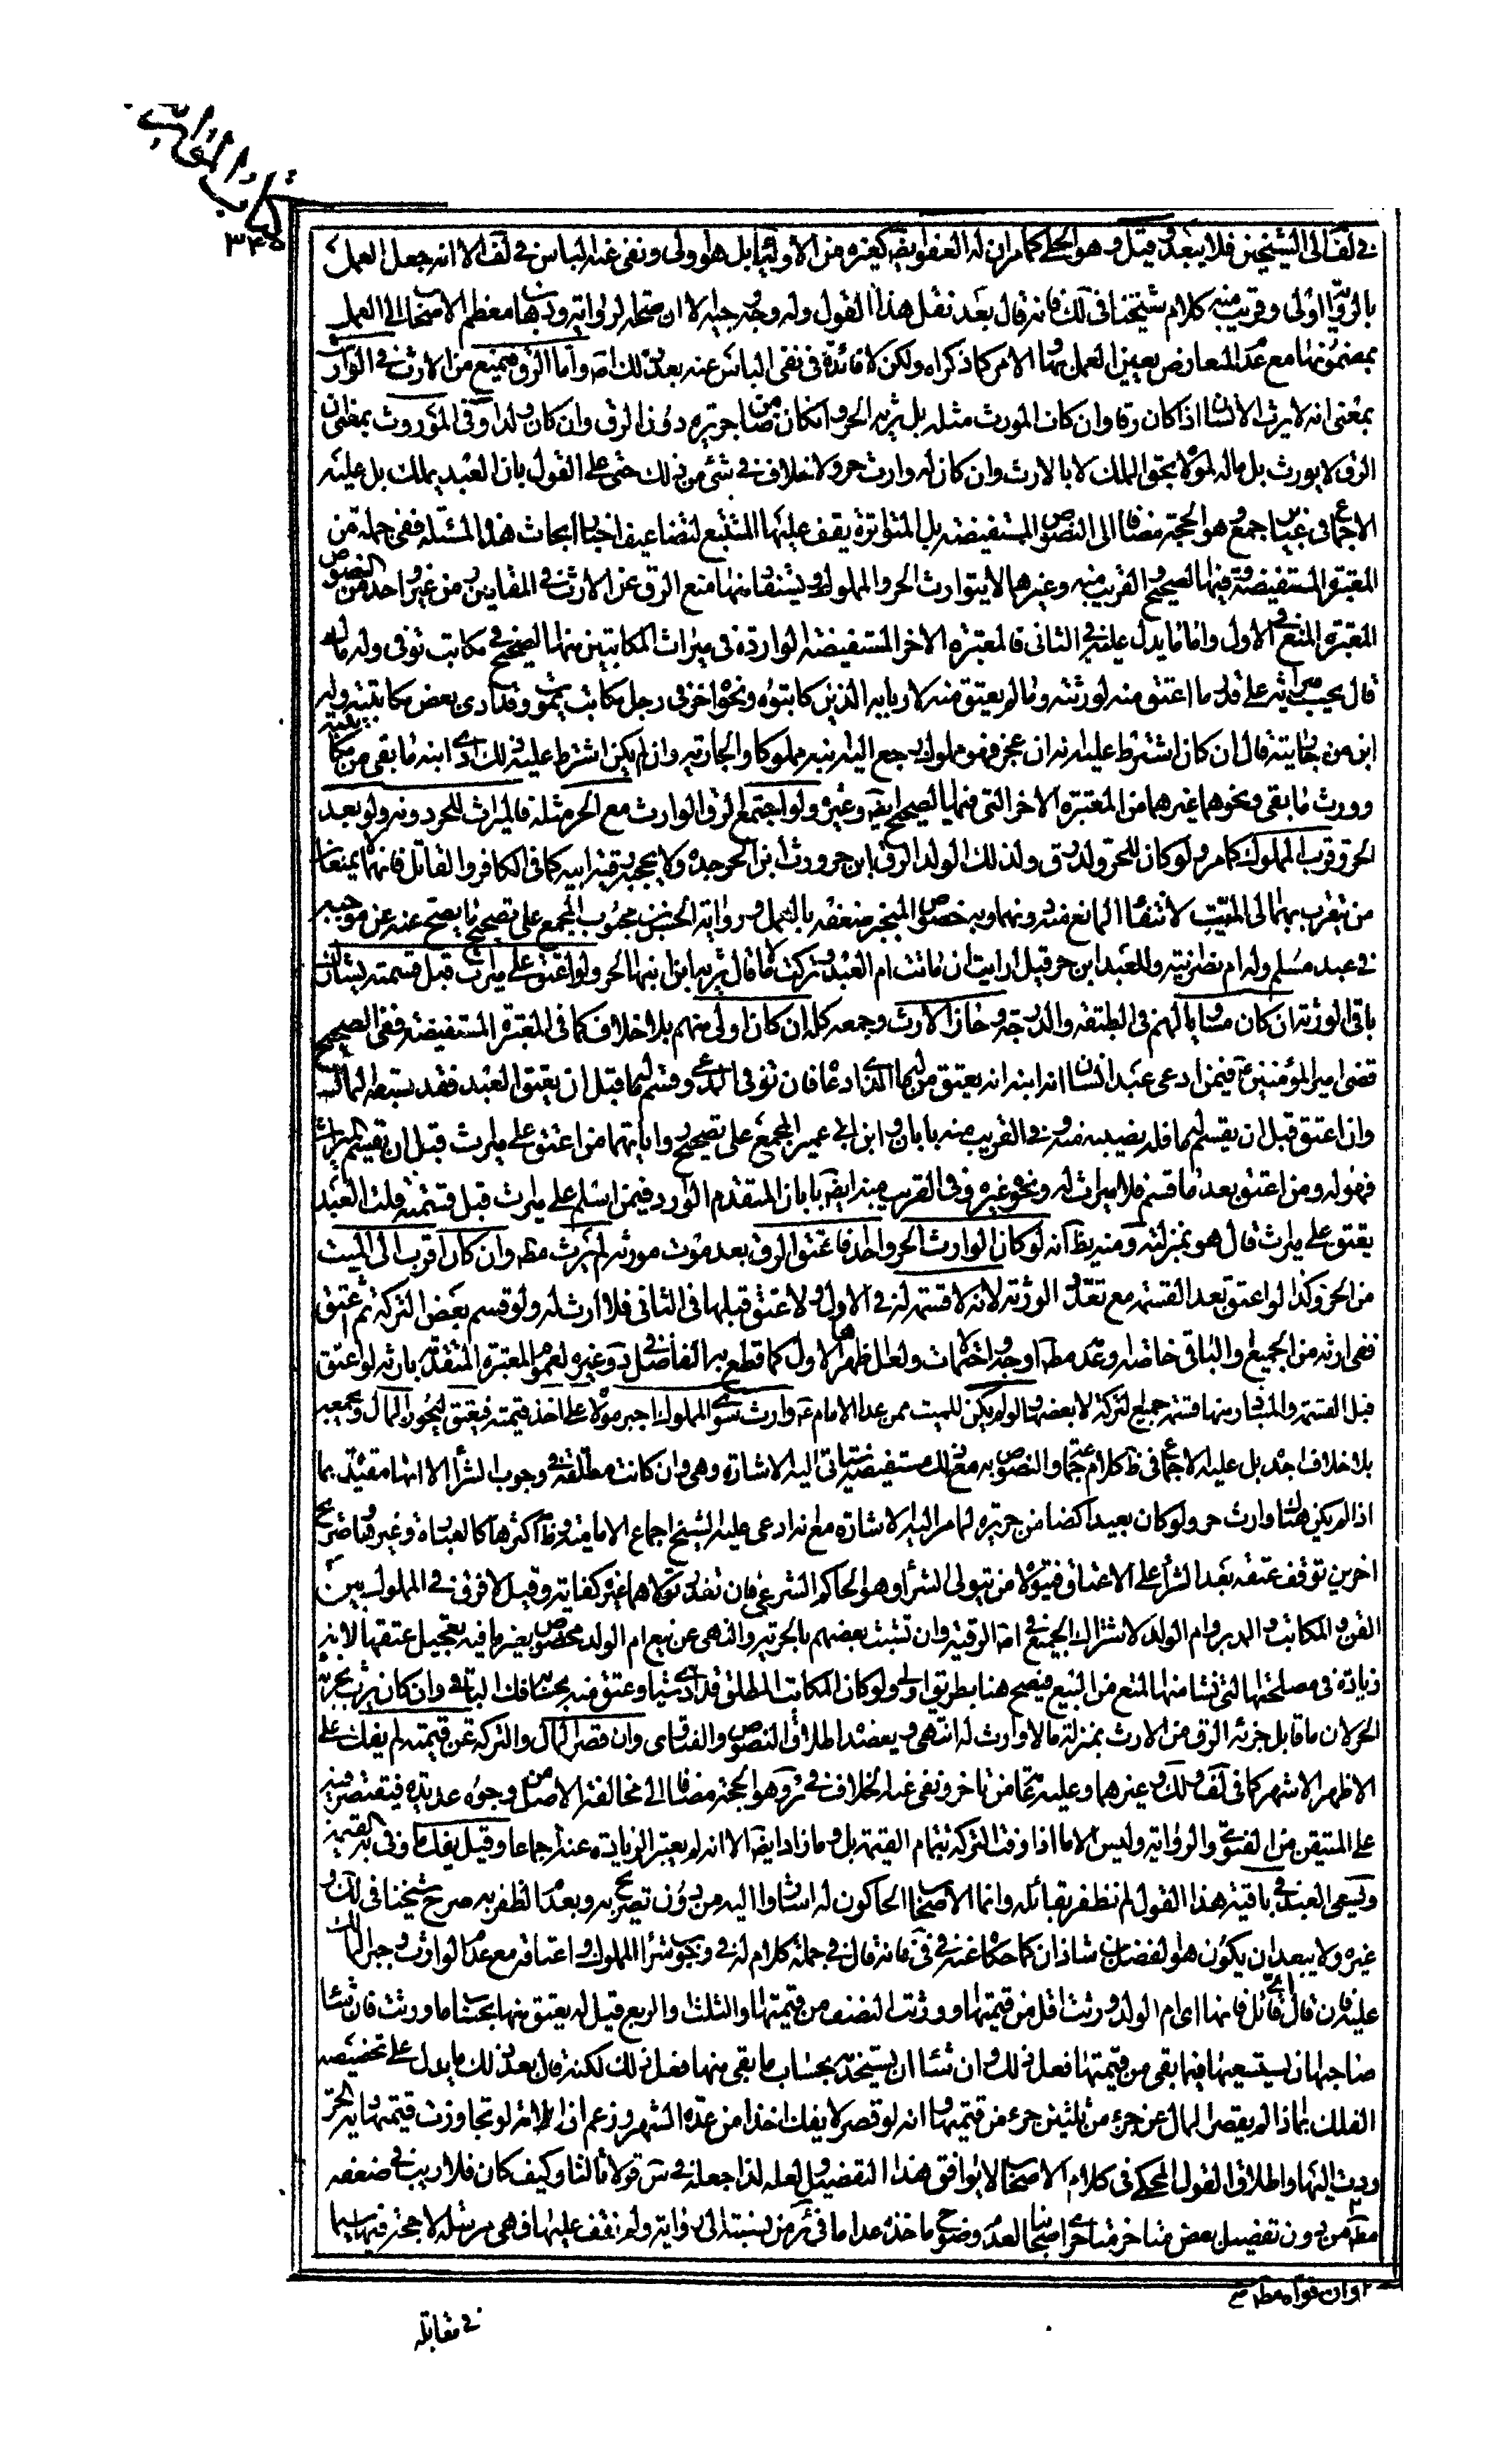 كتاب المواريث
٣٤٥
في لف الى الشيخين فلا يبعد وقيل وهو الحلي كما مر ان له العفو ايضا كغيره من الأولياء بل هو اولى ونفى عنه الباس في لف الا انه جعل العمل
بالرواية اولى وقريب منه كلام شيخنا في لك فانه قال بعد نقل هذا القول وله وجه وجيه الا ان صحة الرواية وذهاب معظم الاصحاب الى العمل
بمضمونها مع عدم المعارض يعين العمل بها والامر كما ذكراه ولكن لا فائدة في نفى الباس عنه بعد ذلك واما الرق فيمنع من الارث في الوارث
بمعنى انه لا يرث الانسان اذا كان رقا وان كان المورث مثله بل يرثه الحر وان كان ضامن جريرة دون الرق وان كان ولدا وفى الموروث بمعنى ان
الرق لا يورث بل ماله لمولاه بحق الملك لا بالارث وان كان له وارث حر ولا خلاف في شئ من ذلك حتى على القول بان العبد يملك بل عليه
الاجماع في عبائر جمع وهو الحجة مضافا الى النصوص المستفيضة بل المتواترة يقف عليها المتتبع لتضاعيف اخبار ابحاث هذه المسئلة ففى جملة من
المعتبرة المستفيضة وفيها الصحيح والقريب منه وغيرهما لا يتوارث الحر والمملوك ويستفاد منها منع الرق عن الارث في المقامين ومن غير واحد من النصوص
المعتبرة المنع في الاول واما ما يدل عليه في الثانى فالمعتبرة الاخر المستفيضة الواردة في ميراث المكاتبين منها الصحيح في مكاتب توفى وله مال
قال يحسب ميراثه على قدر ما اعتق منه لورثته وما لم يعتق منه لاربابه الذين كاتبوه ونحو اخر في رجل مكاتب يموت وقد ادى بعض مكاتبته وله
ابن من جاريته قال ان كان اشترط عليه انه ان عجز فهو مملوك رجع اليه ابنه مملوكا والجارية وان لم يكن اشترط عليه ذلك ادى ابنه ما بقى من مكاتبته
وورث ما بقى ونحوهما غيرهما من المعتبرة الاخر التى فيها الصحيح ايضا وغيره ولو اجتمع الرق الوارث مع الحر مثله فالميراث للحر دونه ولو بعد
الحر وقرب المملوك كما مر ولو كان للحر ولد رق ولذلك الولد الرق ابن حر ورث ابن الحر جده ولا يحجبه رقية ابيه كما في الكافر والقاتل فانهما لا يمنعان
من يتقرب بهما الى الميت لانتفاء المانع منه دونهما وبه خصوص الخبر المنجبر ضعفه بالعمل ورواية الحسن بن محبوب المجمع على تصحيح ما يصح عنه عن موجبه
في عبد مسلم وله ام نصرانية وللعبد ابن حر قيل ارايت ان ماتت ام العبد وتركت مالا قال يرثه ابن ابنها الحر ولو اعتق على ميراث قبل قسمته شارك
باقى الورثة ان كان مساويا لهم في الطبقة والدرجة وحاز الارث وجمعه كله ان كان اولى منهم بلا خلاف كما في المعتبرة المستفيضة ففى الصحيح
قضى امير المؤمنين ع فيمن ادعى عبد انسان انه ابنه انه يعتق من مال الذى ادعاه فان توفى المدعى وقسم ماله قبل ان يعتق العبد فقد سبقه المال
وان اعتق قبل ان يقسم ماله فله نصيبه منه وفي القريب منه بابان وابن ابى عمير المجمع على تصحيح رواياتهما من اعتق على ميراث قبل ان يقسم الميراث
فهو له ومن اعتق بعد ما قسم فلا ميراث له ونحوه غيره وفى القريب منه ايضا بابان المتقدم الوارد فيمن اسلم على ميراث قبل قسمته قلت العبد
يعتق على ميراث قال هو بمنزلته ومنه يظهر انه لو كان الوارث الحر واحدا فاعتق الرق بعد موت مورثه لم يرث مط وان كان اقرب الى الميت
من الحر وكذا لو اعتق بعد القسمة مع تعدد الورثة لانه لا قسمة له في الاول ولا عتق قبلها في الثانى فلا ارث له ولو قسم بعض التركة ثم اعتق
ففى ارثه من الجميع او الباقى خاصة او عدمه مط اوجه واحتمالات ولعل اظهرها الاول كما قطع به الفاضل في د وغيره لعموم المعتبرة المتقدمة بارثه لو اعتق
قبل القسمة والمتبادر منها قسمة جميع التركة لا بعضها ولو لم يكن للميت ممن عدا الامام ع وارث سوى المملوك اجبر مولاه على اخذ قيمته فيعتق ليحوز المال ويجمعه
بلا خلاف اجده بل عليه الاجماع في ظ كلام جماعة والنصوص به مع ذلك مستفيضة ستاتى اليه الاشارة وهى وان كانت مطلقة في وجوب الشراء الا انها مقيدة بما
اذا لم يكن هناك وارث حر ولو كان بعيدا كضامن جريرة لما مر اليه الاشارة مع انه ادعى عليه الشيخ اجماع الامامية وظ اكثرها كالعبارة وغيرها وصريح
اخرين توقف عتقه بعد الشراء على الاعتاق فيتولاه من يتولى الشراء وهو الحاكم الشرعى فان تعذر تولاهما غيره كفاية وقيل لا فرق في المملوك بين
القن والمكاتب والمدبر وام الولد لاشتراك الجميع في اصل الرقية وان تشبث بعضهم بالحرية والنهى عن بيع ام الولد مخصوص بغير ما فيه تعجيل عتقها لانه
زيادة في مصلحتها التى نشا منها المنع من البيع فيصح هنا بطريق اولى ولو كان المكاتب المطلق قد ادى شيئا وعتق منه بحسابه فك الباقى وان كان يرث بجزئه
الحر لان ما قابل جزئه الرق من الارث بمنزلة مالا وارث له انتهى ويعضده اطلاق النصوص والفتاوى وان قصر المال والتركة عن قيمته لم يفك على
الاظهر الاشهر كما في لف ولك وغيرهما وعليه عامة من تاخر ونفى عنه الخلاف في ئر وهو الحجة مضافا الى مخالفته الاصل من وجوه عديدة فيقتصر فيه
على المتيقن من الفتوى والرواية وليس الا ما اذا وفت التركة بتمام القيمة بل وما زاد ايضا الا انه لم يعتبر الزيادة عنه اجماعا وقيل يفك ما وفى به القيمة
ويسعى العبد في باقيه هذا القول لم نظفر بقائله وانما الاصحاب الحاكون له اشاروا اليه من دون تصريح به وبعدم الظفر به صرح شيخنا في لك و
غيره ولا يبعد ان يكون هو الفضل بن شاذان كما حكاه عنه في في فانه قال في جملة كلام له في وجوب شراء المملوك واعتاقه مع عدم الوارث وجبر المالك
عليه فان قال قائل فانها اى ام الولد ورثت اقل من قيمتها وورثت النصف من قيمتها والثلث او الربع قيل له يعتق منها بحساب ما ورثت فان شاء
صاحبها ان يستسعيها فيما بقى من قيمتها فعل ذلك وان شاء ان يستخدمه بحساب ما بقى منها فعل ذلك لكنه قال بعد ذلك ما يدل على تخصيصه
الفك بما اذا لم يقصر المال عن جزء من ثلثين جزء من قيمتها وانه لو قصر لا يفك اخذا من عدة الشهر وزعم ان الامة لو تجاوزت قيمتها دية الحر
ردت اليها واطلاق القول المحكى في كلام الاصحاب لا يوافق هذا التفصيل ولعله لذا جعله في س قولا ثالثا وكيف كان فلا ريب في ضعفه
مط من دون تفصيل بعض متاخر متاخرى اصحابنا لعدم وضوح ماخذه عدا ما في ئر من نسبته الى رواية ولم نقف عليها فهى مرسلة لا حجة فيها سيما
وان قواه مط صح
في مقابلة